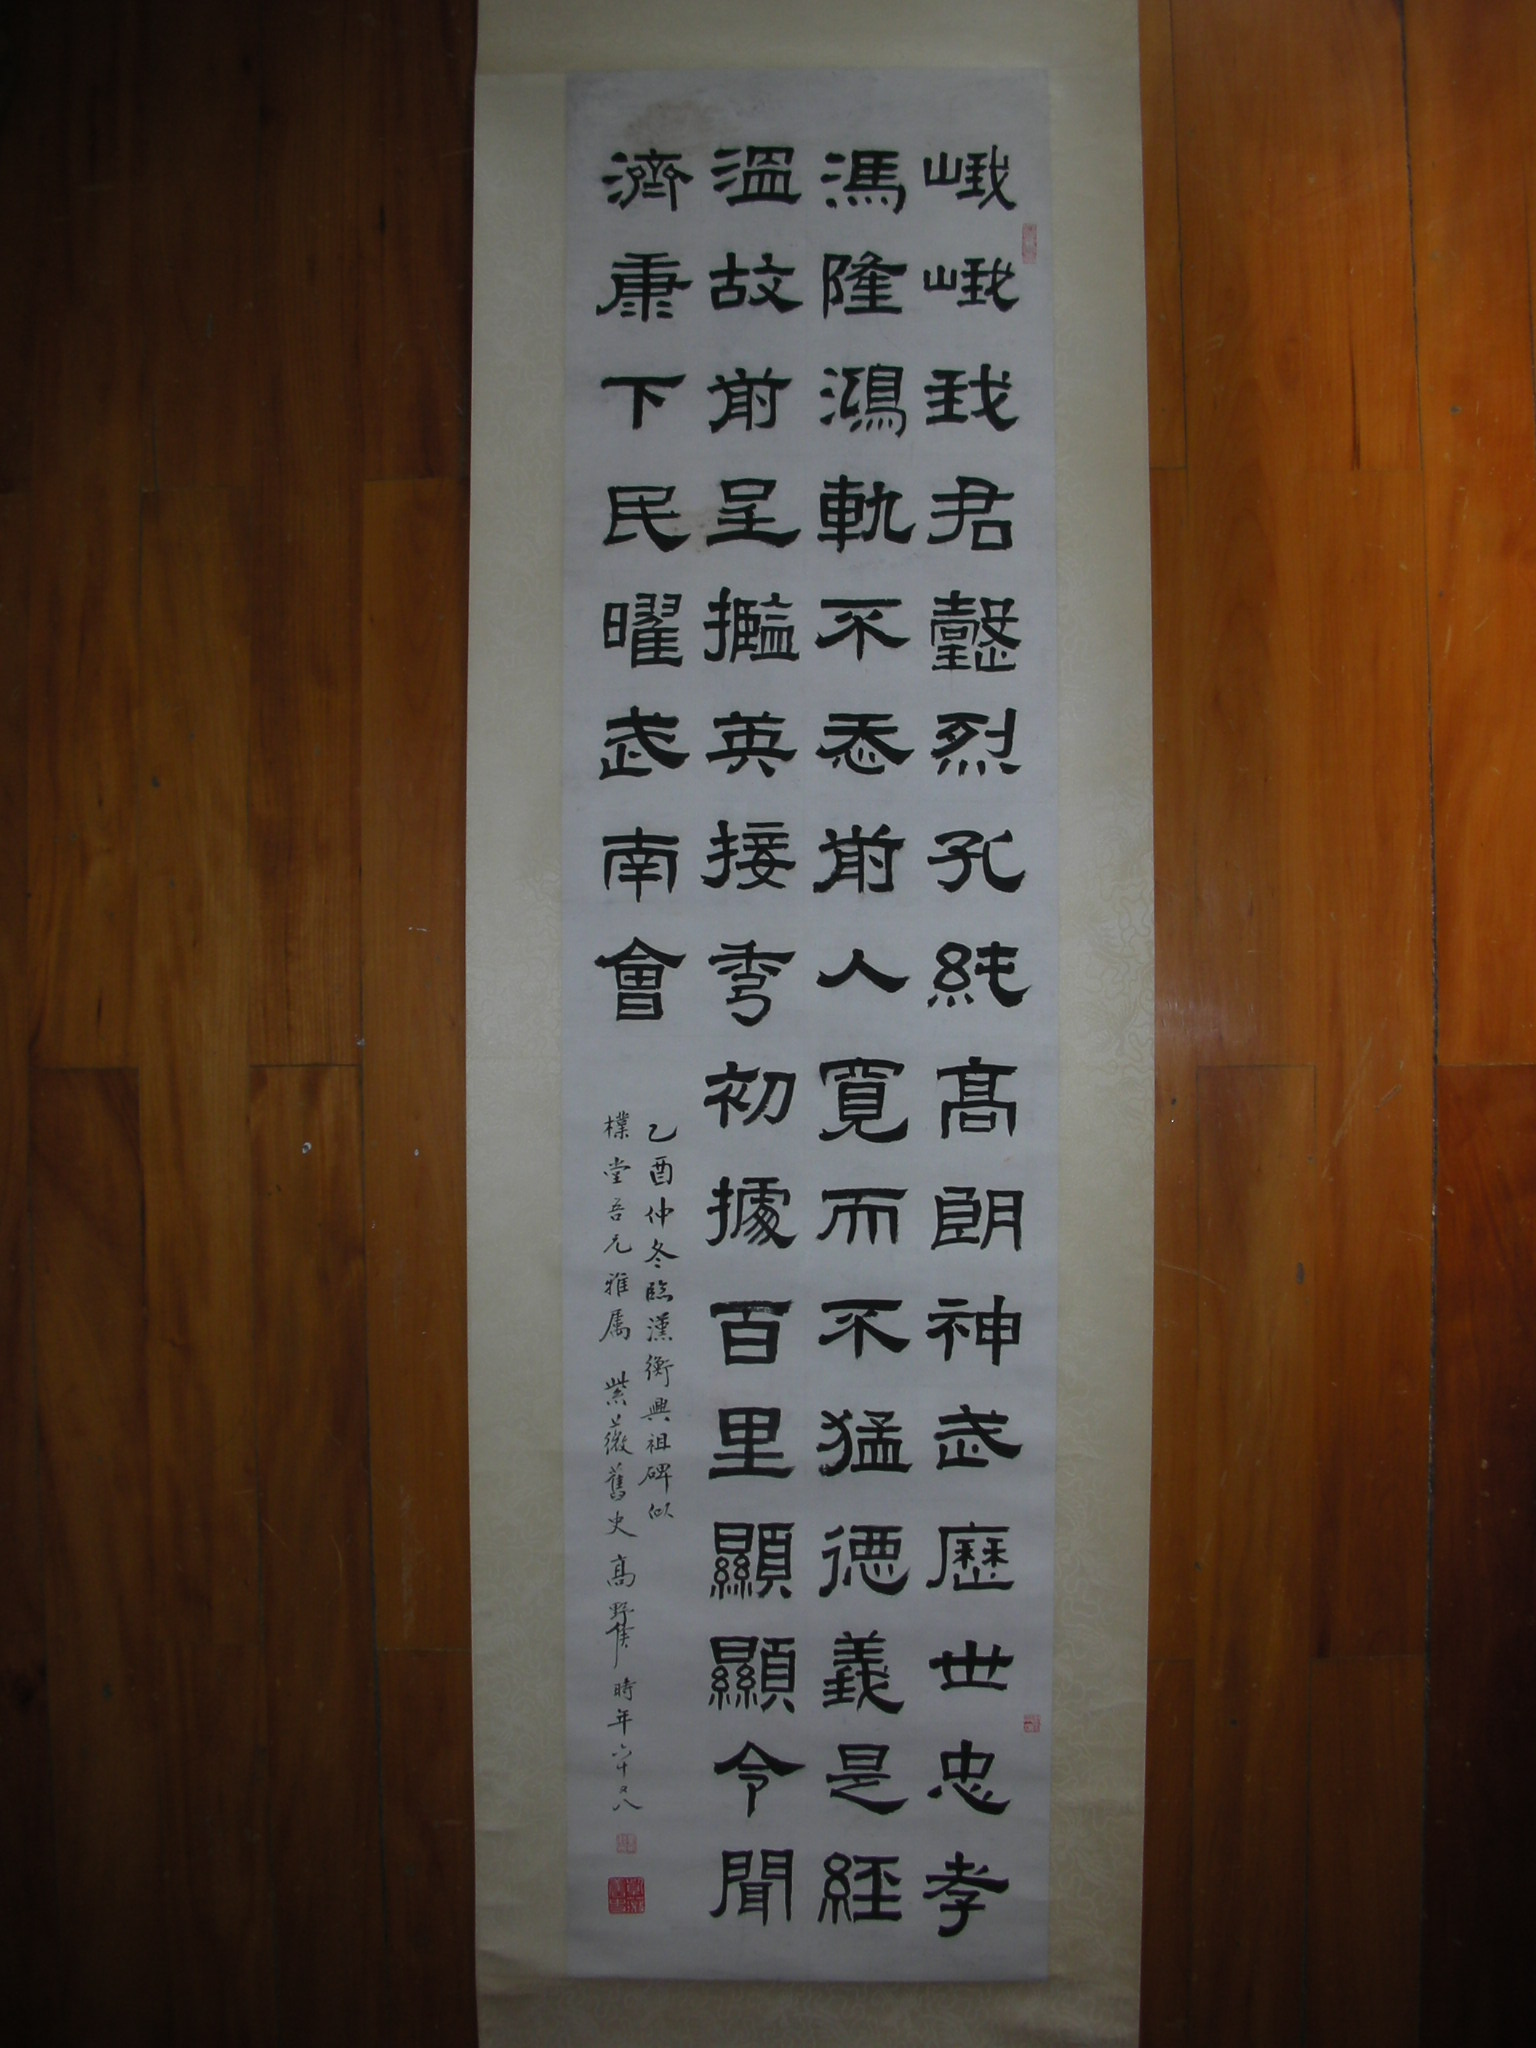 峨峨我君懿烈孔純高朗神武歷世忠孝
馮隆鴻軌不忝前人寬而不猛德義是經
溫故前呈攬英接秀初據百里顯顯令聞
濟康下民曜武南會
乙酉仲冬臨漢衡興祖碑似
樸堂吾兄雅屬 紫薇舊史高野侯時年六十又八